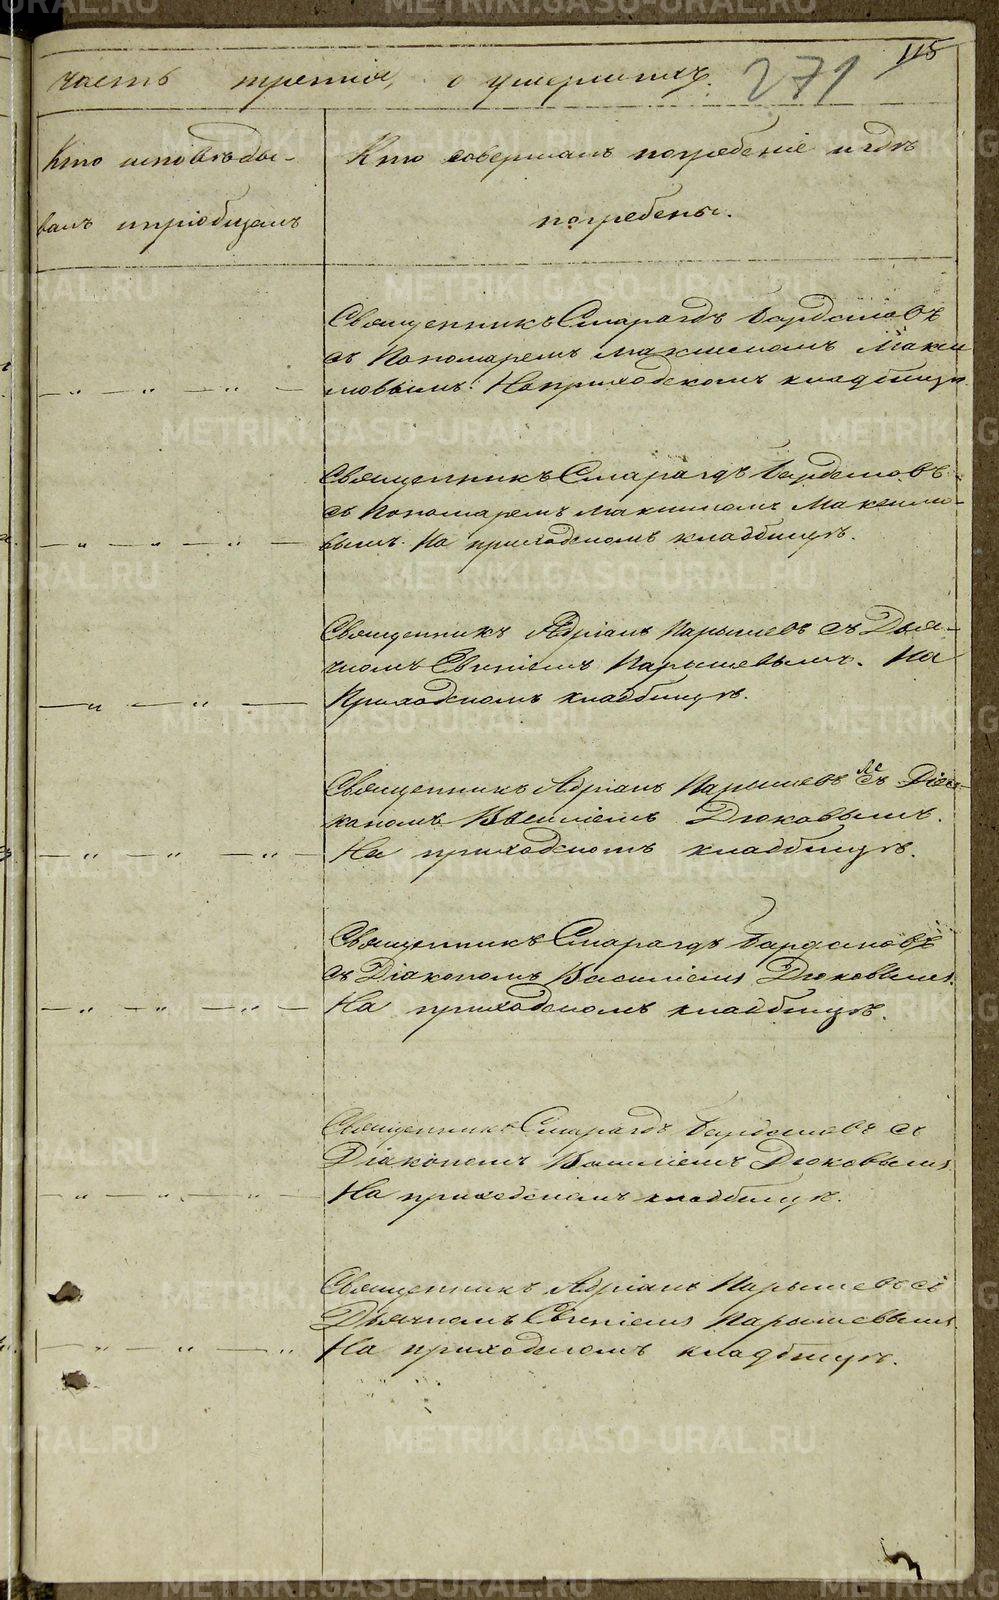 115
271
часть третія, о умершихъ.
Кто исповѣды-
валъ и пріобщалъ
Кто совершалъ погребеніе и гдѣ
погребены.
Священникъ Смарагдъ Бардановъ
съ Пономаремъ Максимомъ Макси
мовымъ. На приходскомъ кладбищѣ.
— „ — „ — „ —
Священникъ Смарагдъ Бардановъ
съ Пономаремъ Максимомъ Максимо-
вымъ. На приходскомъ кладбищѣ.
— „ — „ — „ —
Священникъ Адріанъ Парышевъ съ Дья-
чкомъ Евгеніемъ Парышевымъ. На
Приходскомъ кладбищѣ.
— „ — „ —
Священникъ Адріанъ Парышевъ съ Діа-
кономъ Василіемъ Дюковымъ.
На приходскомъ кладбищѣ.
— „ — „ — „ —
Священникъ Смарагдъ Бардановъ
съ Діакономъ Василіемъ Дюковымъ.
На приходскомъ кладбищѣ.
— „ — „ — „ —
Священникъ Смарагдъ Бардановъ съ
Діакономъ Василіемъ Дюковымъ.
На приходскомъ кладбищѣ.
— „ — „ — „ —
Священникъ Адріанъ Парышевъ съ
Дьячкомъ Евгеніемъ Парышевымъ.
На приходскомъ кладбищѣ.
— „ — „ — „
METRIKI.GASO-URAL.RU